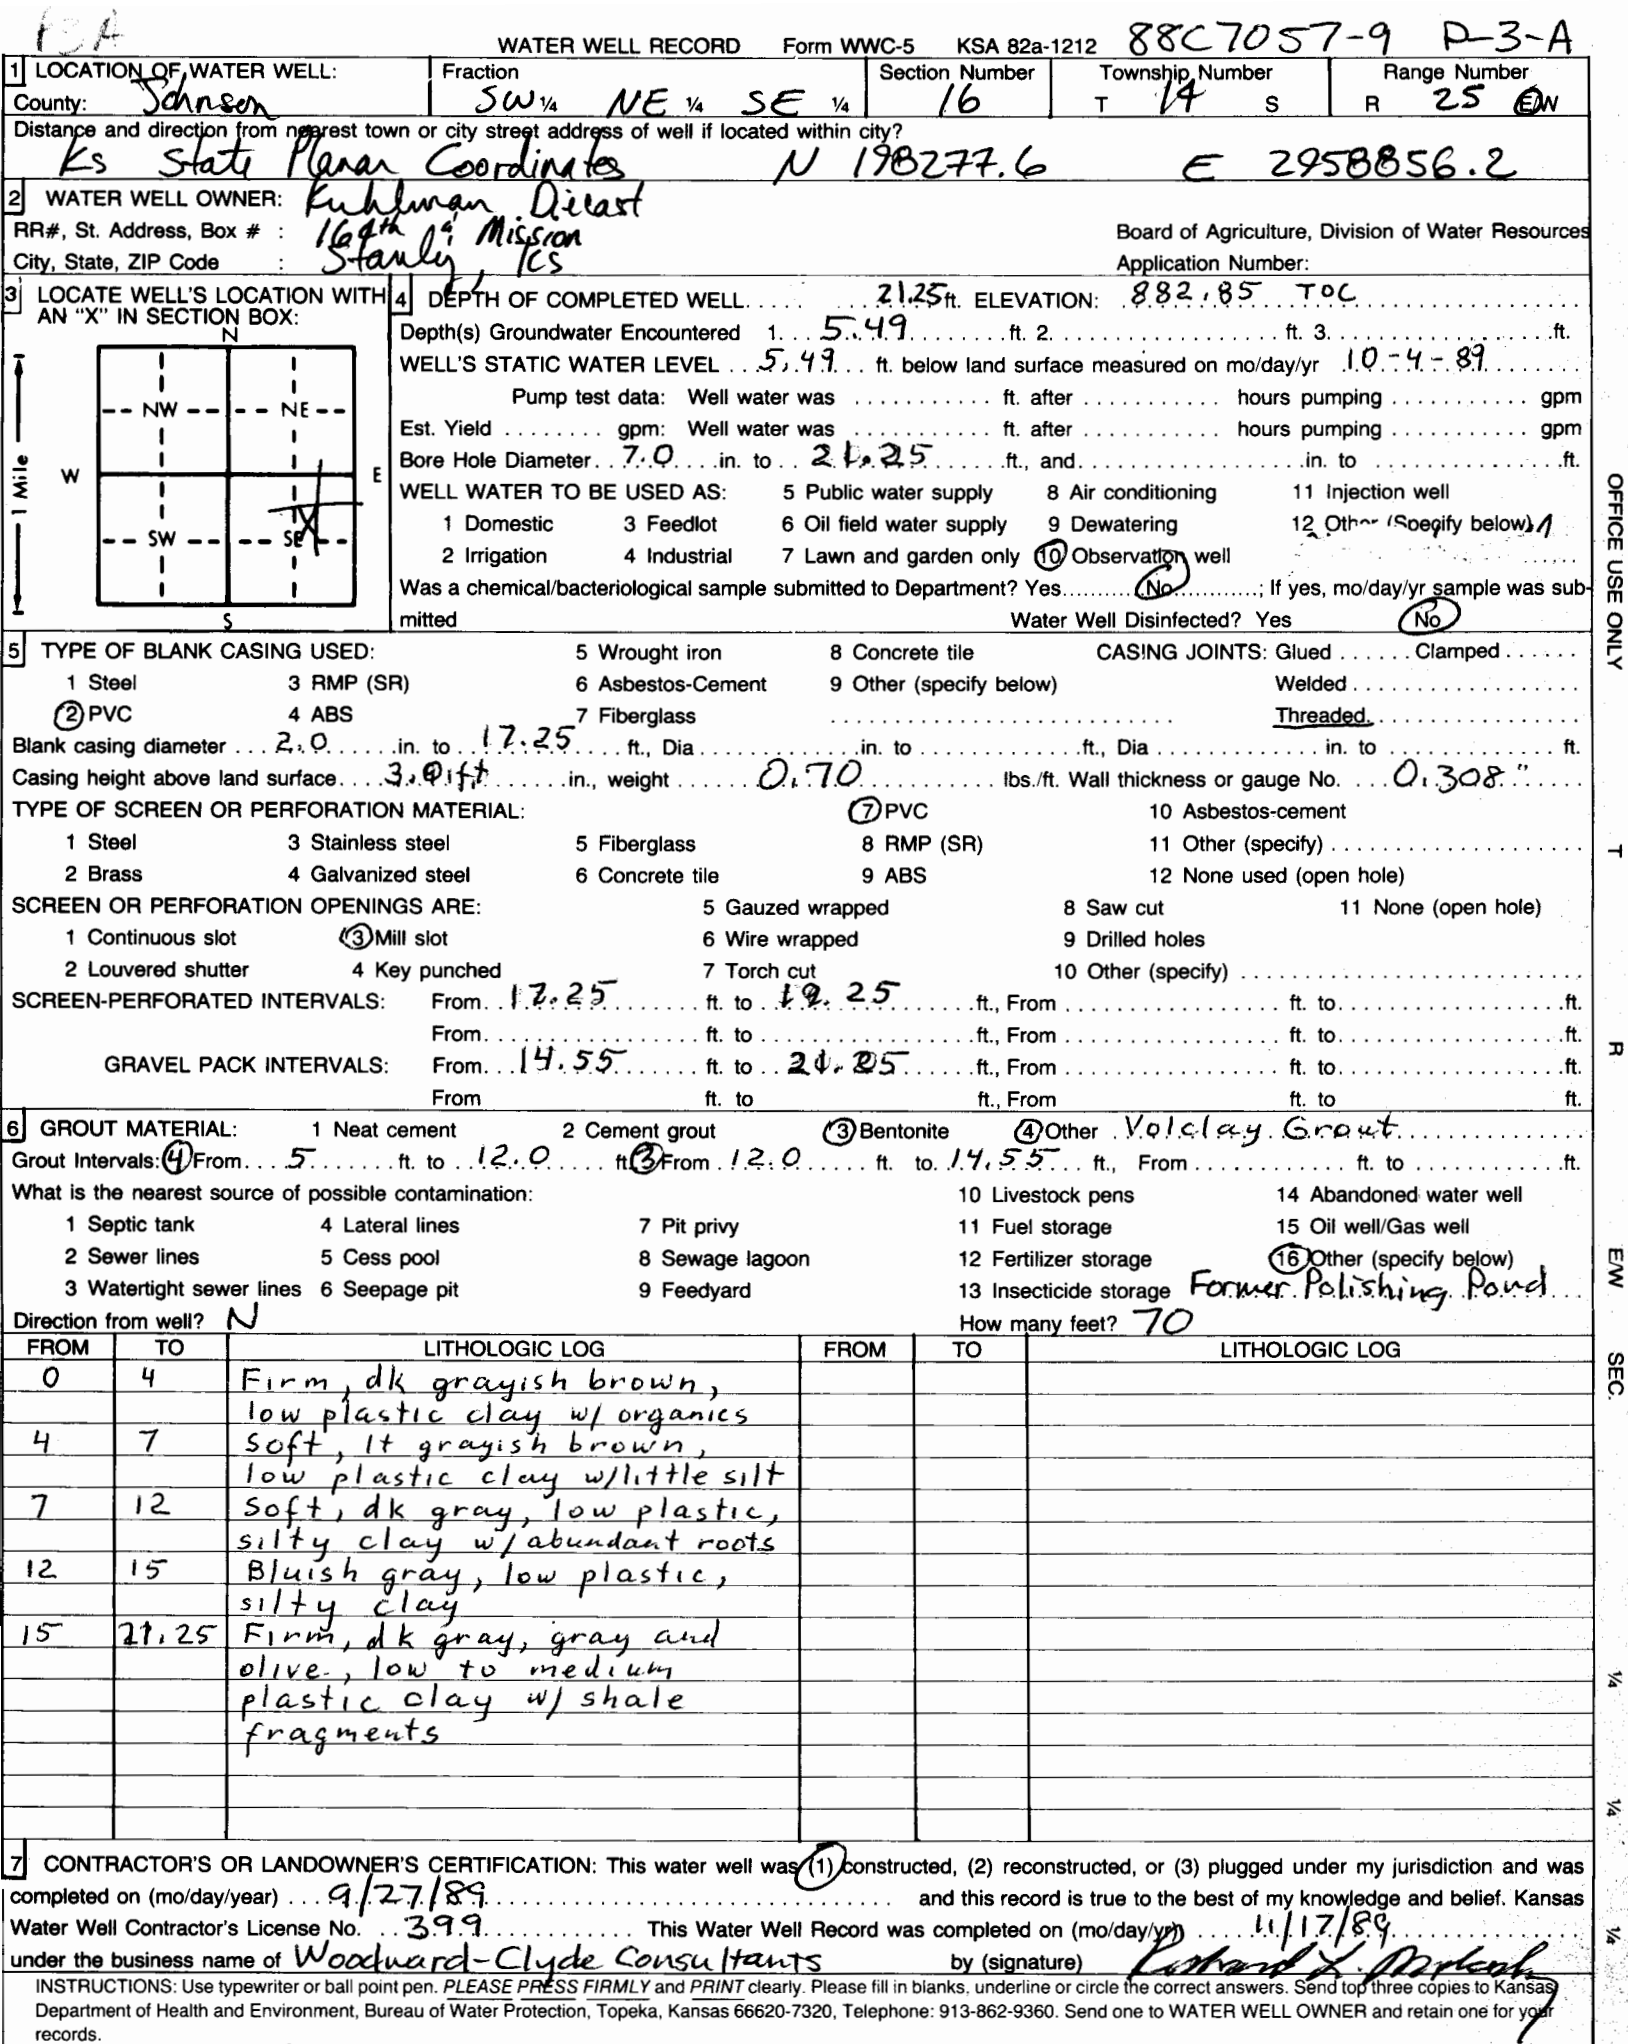 WATER WELL RECORD Form WWC-5 KSA 82a-1212 88C7057-9 P-3-A
1 LOCATION OF WATER WELL: Fraction Section Number Township Number Range Number
County: Johnson SW ¼ NE ¼ SE ¼ 16 T 14 S R 25 E/W
Distance and direction from nearest town or city street address of well if located within city?
Ks State Planar Coordinates N 198277.6 E 2958856.2
2 WATER WELL OWNER: Kuhlman Diecast
RR#, St. Address, Box # : 164th & Mission Board of Agriculture, Division of Water Resources
City, State, ZIP Code : Stanly, KS Application Number:
3 LOCATE WELL'S LOCATION WITH AN "X" IN SECTION BOX:
N
NW NE
W E
SW SE
S
1 Mile
4 DEPTH OF COMPLETED WELL..... 21.25 ft. ELEVATION: 882.85 TOC
Depth(s) Groundwater Encountered 1. 5.49 ft. 2. ft. 3. ft.
WELL'S STATIC WATER LEVEL 5.49 ft. below land surface measured on mo/day/yr 10-4-89
Pump test data: Well water was ft. after hours pumping gpm
Est. Yield gpm: Well water was ft. after hours pumping gpm
Bore Hole Diameter 7.0 in. to 21.25 ft., and in. to ft.
WELL WATER TO BE USED AS: 5 Public water supply 8 Air conditioning 11 Injection well
1 Domestic 3 Feedlot 6 Oil field water supply 9 Dewatering 12 Other (Specify below)
2 Irrigation 4 Industrial 7 Lawn and garden only 10 Observation well
Was a chemical/bacteriological sample submitted to Department? Yes No ; If yes, mo/day/yr sample was sub-
mitted Water Well Disinfected? Yes No
5 TYPE OF BLANK CASING USED: 5 Wrought iron 8 Concrete tile CASING JOINTS: Glued Clamped
1 Steel 3 RMP (SR) 6 Asbestos-Cement 9 Other (specify below) Welded
2 PVC 4 ABS 7 Fiberglass Threaded
Blank casing diameter 2.0 in. to 17.25 ft., Dia in. to ft., Dia in. to ft.
Casing height above land surface 3.0 ft in., weight 0.70 lbs./ft. Wall thickness or gauge No. 0.308"
TYPE OF SCREEN OR PERFORATION MATERIAL: 7 PVC 10 Asbestos-cement
1 Steel 3 Stainless steel 5 Fiberglass 8 RMP (SR) 11 Other (specify)
2 Brass 4 Galvanized steel 6 Concrete tile 9 ABS 12 None used (open hole)
SCREEN OR PERFORATION OPENINGS ARE: 5 Gauzed wrapped 8 Saw cut 11 None (open hole)
1 Continuous slot 3 Mill slot 6 Wire wrapped 9 Drilled holes
2 Louvered shutter 4 Key punched 7 Torch cut 10 Other (specify)
SCREEN-PERFORATED INTERVALS: From 17.25 ft. to 19.25 ft., From ft. to ft.
From ft. to ft., From ft. to ft.
GRAVEL PACK INTERVALS: From 14.55 ft. to 21.25 ft., From ft. to ft.
From ft. to ft., From ft. to ft.
6 GROUT MATERIAL: 1 Neat cement 2 Cement grout 3 Bentonite 4 Other Volclay Grout
Grout Intervals: 4 From 5 ft. to 12.0 ft. 3 From 12.0 ft. to 14.55 ft., From ft. to ft.
What is the nearest source of possible contamination: 10 Livestock pens 14 Abandoned water well
1 Septic tank 4 Lateral lines 7 Pit privy 11 Fuel storage 15 Oil well/Gas well
2 Sewer lines 5 Cess pool 8 Sewage lagoon 12 Fertilizer storage 16 Other (specify below)
3 Watertight sewer lines 6 Seepage pit 9 Feedyard 13 Insecticide storage Former Polishing Pond
Direction from well? N How many feet? 70
FROM TO LITHOLOGIC LOG FROM TO LITHOLOGIC LOG
0 4 Firm, dk grayish brown,
low plastic clay w/ organics
4 7 Soft, lt grayish brown,
low plastic clay w/little silt
7 12 Soft, dk gray, low plastic,
silty clay w/ abundant roots
12 15 Bluish gray, low plastic,
silty clay
15 21.25 Firm, dk gray, gray and
olive, low to medium
plastic clay w/ shale
fragments
7 CONTRACTOR'S OR LANDOWNER'S CERTIFICATION: This water well was (1) constructed, (2) reconstructed, or (3) plugged under my jurisdiction and was
completed on (mo/day/year) 9/27/89 and this record is true to the best of my knowledge and belief. Kansas
Water Well Contractor's License No. 399 This Water Well Record was completed on (mo/day/yr) 11/17/89
under the business name of Woodward-Clyde Consultants by (signature) Richard L.
INSTRUCTIONS: Use typewriter or ball point pen. PLEASE PRESS FIRMLY and PRINT clearly. Please fill in blanks, underline or circle the correct answers. Send top three copies to Kansas
Department of Health and Environment, Bureau of Water Protection, Topeka, Kansas 66620-7320, Telephone: 913-862-9360. Send one to WATER WELL OWNER and retain one for your
records.
OFFICE USE ONLY
T
R
E/W
SEC.
¼
¼
¼